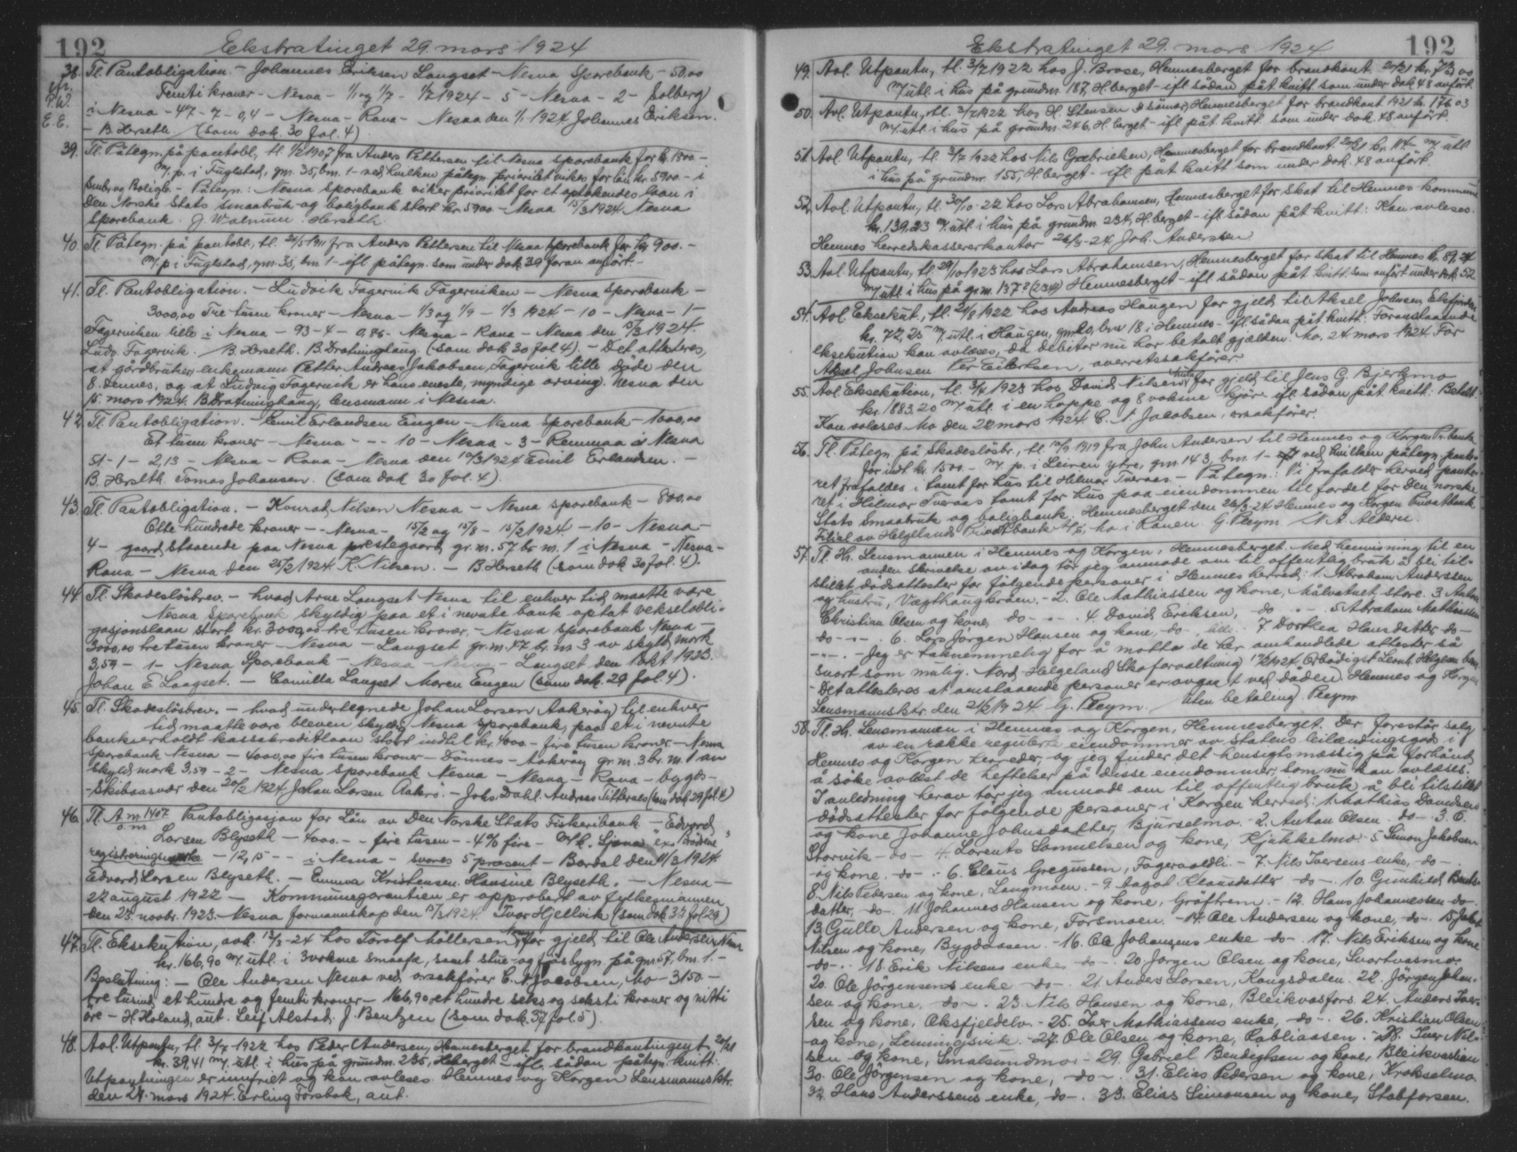 192 Ekstratinget 29. mars 1924
38. Tl. Pantobligation. - Johannes Eriksen Langset - Nesna Sparebank - 50,00
Femti kroner - Nesna - 1/1 og 1/7 - 1/7 1924 - 5 - Nesna - 2 - Solberg
i Nesna - 47 - 7 - 0,4 - Nesna - Rana - Nesna den 1/1 1924 Johannes Eriksen.
- B Horseth (som dok. 30 fol. 4)
39. Tl. Påtegn. på pantobl., tl. 1/2 1907 fra Anders Pettersen til Nesna Sparebank for kr. 1300 -
m/ p. i Fuglstad, gm. 35, bm. 1 - ved hvilken påtegn. prioritet vikes for lån kr. 5900 - i
Småbr. og Boligb. - Påtegn: Nesna Sparebank viker prioritet for et optakendes laan i
Den Norske Stats Smaabruk og boligbank stort kr. 5900 - Nesna 15/3 1924 Nesna
Sparebank. J. Walnum Horseth
40. Tl. Påtegn. på pantobl., tl. fra Anders Pettersen til Nesna Sparebank for kr. 900. -
m/ p. i Fuglstad, gm. 35, bm. 1 - ifl. påtegn. som under dok. 39 foran anført. -
41. Tl. Pantobligation. - Ludvik Fagervik Fagerviken - Nesna Sparebank -
3000,00 Tre tusen kroner - Nesna - 1/3 og 1/9 - 1/3 1924 - 10 - Nesna - 1 -
Fagerviken lille i Nesna - 93 - 4 - 0,86 - Nesna - Rana - Nesna den 1924
Ludv. Fagervik. B. Horseth. B. Drotninghaug (som dok. 30 fol. 4). - Det attesteres,
at gårdbruker enkemann Petter Andreas Jakobsen, Fagervik lille døde den
8. dennes, og at Ludvig Fagervik er hans eneste, myndige arving. Nesna den
15. mars 1924. B. Drotninghaug, lensmann i Nesna.
42. Tl. Pantobligation. - Emil Erlandsen Engen - Nesna Sparebank - 1000,00
Et tusen kroner - Nesna - - - 10 - Nesna - 3 - Remmaa i Nesna
51 - 1 - 2,13 - Nesna - Rana - Nesna den 10/3 1924 Emil Erlandsen. -
B. Horseth. Tomas Johansen. (som dok 30 fol. 4).
43. Tl. Pantobligation. - Konrad Nilsen Nesna - Nesna Sparebank - 800,00
Otte hundrede kroner - Nesna - 15/2 og 15/8 - 15/2 1924 - 10 - Nesna -
4 - gaard, staaende paa Nesna prestegaard gr. m. 57 br. m. 1 i Nesna - Nesna -
Rana - Nesna den 1924 K. Nilsen. - B Horseth (som dok. 30 fol. 4).
44. Tl. Skadesløsbrev. - hvad Arne Langset Nesna til enhver tid maatte være
Nesna Sparebank skyldig paa et i nevnte bank optat vekselobli-
gasjonslaan stort kr. 3000,00 tre tusen kroner. - Nesna Sparebank Nesna -
3000,00 tre tusen kroner - Nesna - Langset gr. m. 47 br. m. 3 av skyld mark
3,59 - 1 - Nesna Sparebank - Nesna - Langset den 1 okt 1923.
Johan E Langset. - Camilla Langset Maren Engen (som dok. 29 fol. 4).
45. Tl. Skadesløsbrev. - hvad undertegnede Johan Larsen Aakerøy til enhver
tid maatte være bleven skyldig Nesna Sparebank paa et i nevnte
bank erholdt kassakreditlaan stort indtil kr. 4000 - fire tusen kroner - Nesna
Sparebank Nesna - 4000,00 fire tusen kroner - Dønnes - Aakerøy gr. m. 3 br. m. 1 av
skyld mark 3,59 - 2 - Nesna Sparebank Nesna - Nesna - Rana - bygds-
skibsasvær den 20/2 1924 Johan Larsen Aakerø. - Johs. Dahl. Andreas (som dok. 29 fol. 4)
46. Tl. A. m. 1407 Pantobligasjon for Lån av Den Norske Stats Fiskeribank - Edvard
Larsen Blyseth - 4000. - fire tusen - 4% fire - "Brødrene"
registreringsmerke - 12,15 - i Nesna - svares 5 prosent - Bardal den 11/2 1924.
Edvard Larsen Blyseth. - Emma Kristensen. Hansine Blyseth. - Nesna -
22 august 1922 - Kommunegarantien er approbert av fylkesmannen
den 23. novbr. 1923. Nesna formannskap den 1924. Ivar Hjellvik (som dok. 33 fol. 29)
47. Tl. Eksekution, avh. 13/3 - 24 hos Torolf Møllersen, for gjeld til Ole Andersen, Nesna
kr. 166,90 m/ utl. i 3 voksne smaafe, samt stue og fjøsbygn. på gm. 57, bm. 1. -
Beslutning: - Ole Andersen Nesna ved o.rsakfører C. A. Jacobsen, Mo - 3150 -
tre tusind et hundre og femti kroner - 166,90, et hundre seks og seksti kroner og nitti
øre - H. Holand, aut. Leif Alstad. J. Bentzen (som dok. 37 fol. 5)
48. Avl. Utpantn., tl. 3/7 1922 hos Peder Andersen, Hemnesberget for brandkontingent
kr. 39,41 m/ utl. i hus på grundm. 235, H.berget - ifl. sådan påtegn. kvitt.
Utpantningen er innfriet og kan avleses. Hemnes og Korgen Lensmannsktr.
den 24. mars 1924. Erling Forsbak, aut.
Ekstratinget 29. mars 1924 192
49. Avl. Utpantn., tl. 3/7 1922 hos J. Brose, Hemnesberget for brandkont. 20/21 kr. 73,00
m/ utl. i hus på grundm. 187, H.berget - ifl. sådan påt. kvitt. som under dok. 48 anført.
50. Avl. Utpantn., tl. 3/7 1922 hos H. Stensen & sønner, Hemnesberget for brandkont. 1921 kr. 176,03
m/ utl. i hus på grundm. 246, H.berget - ifl. påt. kvitt. som under dok. 48 anført.
51. Avl. Utpantn., tl. 3/7 1922 hos Nils Gabrielsen, Hemnesberget for brandkont. m/ utl.
i hus på grundm. 155, H.berget - ifl. påt. kvitt. som under dok. 48 anført.
52. Avl. Utpantn., tl. 30/10 - 22 hos Lars Abrahamsen, Hemnesberget for skat til Hemnes kommune
kr. 139.23 m/ utl. i hus på grundm. 234, H.berget - ifl. sådan påt. kvitt: Kan avleses.
Hemnes herredskassererkontor 26/3 - 24 Joh. Andersen
53. Avl. Utpantn., tl. 29/10 1923 hos Lars Abrahamsen, Hemnesberget for skat til Hemnes kr. 89,24
m/ utl. i hus på gr. m. 137 (234) Hemnesberget - ifl. sådan påt. kvitt. som anført under dok. 52
54. Avl. Eksekut., tl. 1922 hos Andreas Haugen for gjeld til Aksel Johnsen,
kr. 72,25 m/ utl. i Haugen, gm. 20, brn. 18 i Hemnes - ifl. sådan påt. kvitt: Foranstaaende
eksekution kan avleses, da debitor nu har betalt gjælden. Mo, 24 mars 1924. For
Aksel Johnsen Per Eilertsen, overretssakfører
55. Avl. Eksekution, tl. 1923 hos David Nilsen for gjeld til Jens G. Bjerkmo
kr. 1883,20 m/ utl. i en hoppe og 8 voksne kjør - ifl. sådan påt. kvitt. Betalt.
Kan avleses Mo den 22 mars 1924 C. A Jacobsen, o.rsakfører.
56. Tl. Påtegn. på Skadesløsbr., tl. 1919 fra John Andersen til Hemnes og Korgen Pr.bank
for intl. kr. 1500 - m/ p. i Leiren ytre, gm. 143, bm. 1 - ved hvilken påtegn. pante-
ret frafaldes i tomt for hus til Hilmar Tveraas - Påtegn: Vi frafalder herved pante-
ret i Hilmar Tveraas tomt for hus paa eiendommen til fordel for den norske
Stats Smaabruk og boligbank. Hemnesberget den 1924 Hemnes og Korgen Privatbank
Filial av Helgelands Privatbank A/S, Mo i Ranen G. Reym N. A. Meldern
57. Tl. Hr. Lensmannen i Hemnes og Korgen, Hemnesberget. Med henvisning til en
anden skrivelse av idag tør jeg anmode om til offentlig bruk å bli til-
stillet dødsattester for følgende personer i Hemnes herred: 1. Abraham Andersen
og hustru, Vægthaugkroen. - 2. Ole Mathiassen og kone, Målvatnet store. 3 Anton
Christian Olsen og kone, do - - . 4 David Eriksen, do - - . 5 Abraham Mathiassen
do - - - . 6. Lars Jørgen Hansen og kone, do - lille. 7 Dorthea Hansdatter do -
- - - . - Jeg er taknemmelig for å motta de her omhandlede attester så
snart som mulig. Nord Helgeland Skogforvaltning 1924. Ærbødigst
- Det attesteres at omstaaende personer er avgaat ved døden. Hemnes og Korgen
Lensmannsktr. den 1924 G. Reym Uten betaling Reym
58. Tl. Hr. Lensmannen i Hemnes og Korgen, Hemnesberget. Der forestår salg
av en række regulerte eiendommer av Statens leilændingsgods i
Hemnes og Korgen herreder, og jeg finder det hensigtsmæssig på forhånd
å søke avlest de heftelser på disse eiendommer, som nu kan avleses.
I anledning herav tør jeg anmode om til offentlig bruk å bli tilstillet
dødsattester for følgende personer i Korgen herred: 1. Mathias Danielsen
og kone Johanne Johnsdatter, Bjurselmo. 2. Anton Olsen - do - 3. O.
Storvik - do - 4. Lorents Samuelsen og kone, Kjukkelmo - 5 Simon Jakobsen
og kone. - do - . 6. Claus Gregusen, Fagervoldli. - 7. Nils Iversens enke, - do - .
8. Nils Pedersen og kone, Langmoen. - 9. Dagot Klausdatter - do - . 10. Gunhild Bents-
datter, - do - . 11 Johannes Hansen og kone, Grøftrem. - 12. Hans Johannessen - do - .
13 Gulle Andersen og kone, Forsmoen. - 14. Ole Andersen og kone, - do - . 15 Jakob
Nilsen og kone, Bygdaasen. - 16. Ole Johansens enke - do - . 17. Nils Eriksen og kone
- do - . 18 Erik Nilsens enke - do - . 20. Jørgen Olsen og kone, Svortvasmo.
20. Ole Jørgensens enke - do - . 21. Anders Larsen, Kangsdalen. 22. Jørgen Johan-
sen og kone, - do - . 23. Nils Hansen og kone, Bleikvasfors. 24. Anders Iver-
sen og kone, Oksfjeldelv. - 25. Iver Mathiassens enke, - do - . 26. Kristian Olsen
og kone, Lenningsvik. - 27. Ole Olsen og kone, Røbliaasen. - 28. Iver Nil-
sen og kone, Smalsundmo. - 29. Gabriel Bendigtsen og kone, Bleikvaslien
30. Ole Jørgensen og kone, - do - . 31. Elias Pedersen og kone, Krokselmo.
32. Hans Anderssens enke, - do - . 33. Elias Simonsen og kone, Stabforsen.